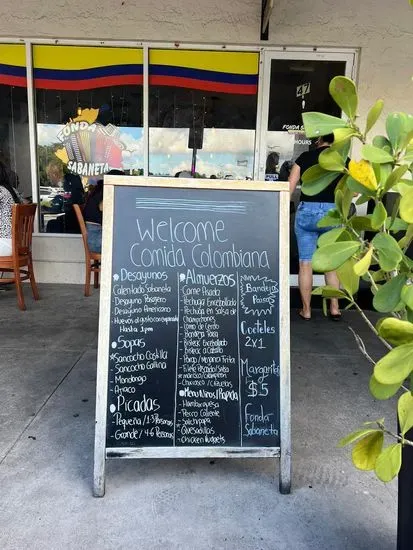 FONDA
SABANETA
47
HOURS
Welcome
Comida Colombiana
Desayunos
Calentado Sabaneta
Desayuno
Desayuno Americano
Huevos al gusto con
Hasta 1pm
Sopas
Sancocho Costilla
Sancocho Gallina
Mondongo
Ajiaco
Picadas
Pequeña / 1-3 Personas
Grande / 4-6 Personas
Almuerzos
Carne Asada
Pechuga Encebollado
Pechuga en Salsa de
Champiñones
Lomo de Cerdo
Bandeja Paisa
Bisteck Encebollado
Bisteck a Caballo
Pargo / Mojarra Frita
Menu Niños
Hamburguesa
Perro Caliente
Salchipapa
Quesadillas
Chicken Nuggets
Bandeja
Paisas
Cocteles
2x1
Margaritas
$5
Fonda
Sabaneta